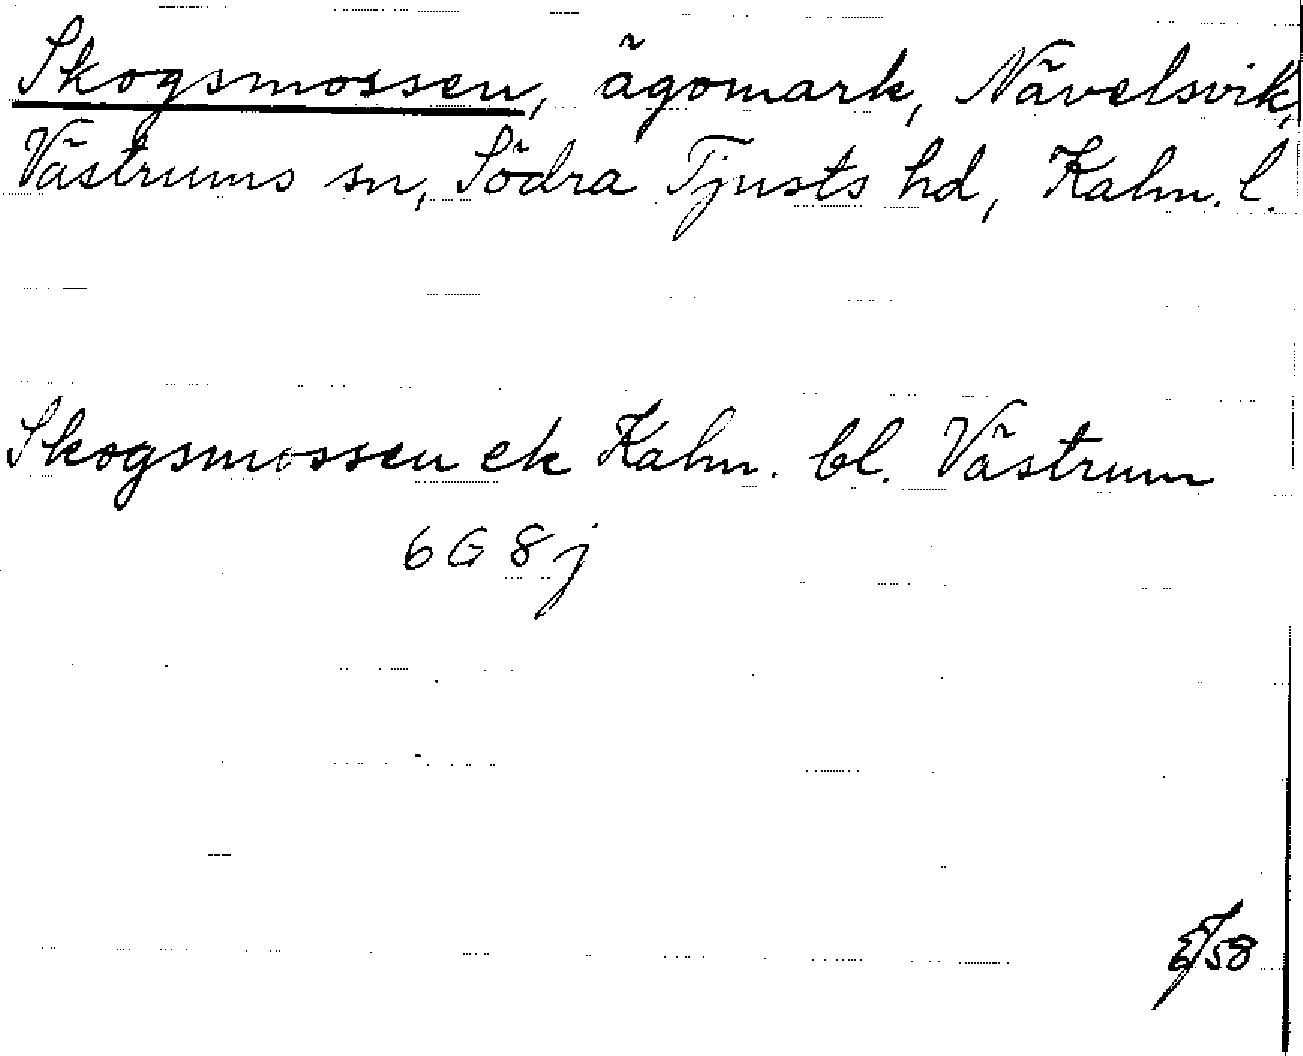 Skogsmossen, ägomark, Nävelsvik,
Västrums sn, Södra Tjusts hd, Kalm. l.
Skogsmossen ek Kalm. bl. Västrum
6 G 8 j
/58